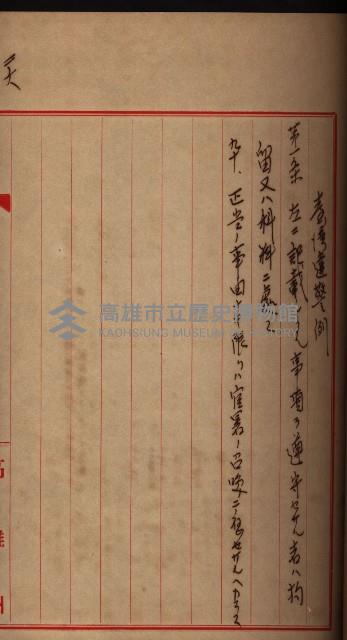 臺灣違警例
第一条 左ニ記載シタル事項ヲ遵守セザル者ハ拘
留又ハ科料ニ處ス
九十、正当ノ事由ナク
官署ノ召喚ニ應セザル
高雄州
高雄市立歷史博物館
KAOHSIUNG MUSEUM OF HISTORY